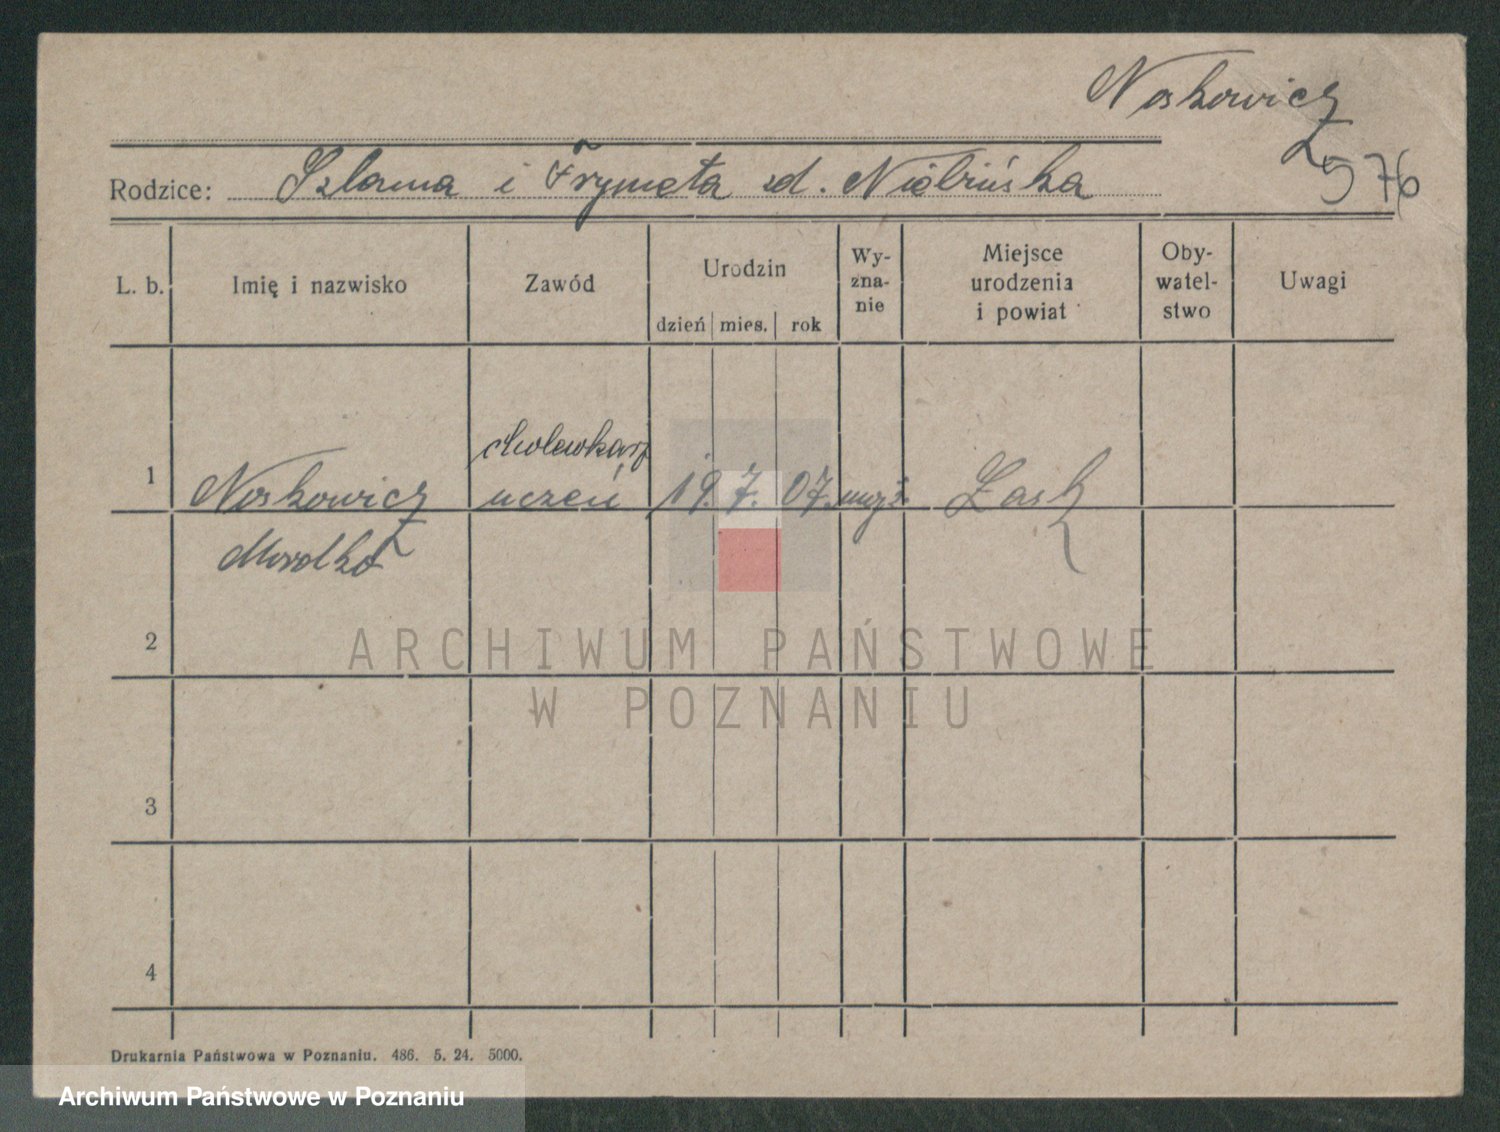 Noskowicz
576
Rodzice: Szlama i Frymeta zd. Nielińska
L. b.
Imię i nazwisko
Zawód
Urodzin
dzień mies. rok
Wy-
zna-
nie
Miejsce
urodzenia
i powiat
Oby-
watel-
stwo
Uwagi
cholewkarz
1 Noskowicz uczeń 19. 7. 07. mojż. Łask
Mordko
2
ARCHIWUM PAŃSTWOWE
W POZNANIU
3
4
Drukarnia Państwowa w Poznaniu. 486. 5. 24. 5000.
Archiwum Państwowe w Poznaniu